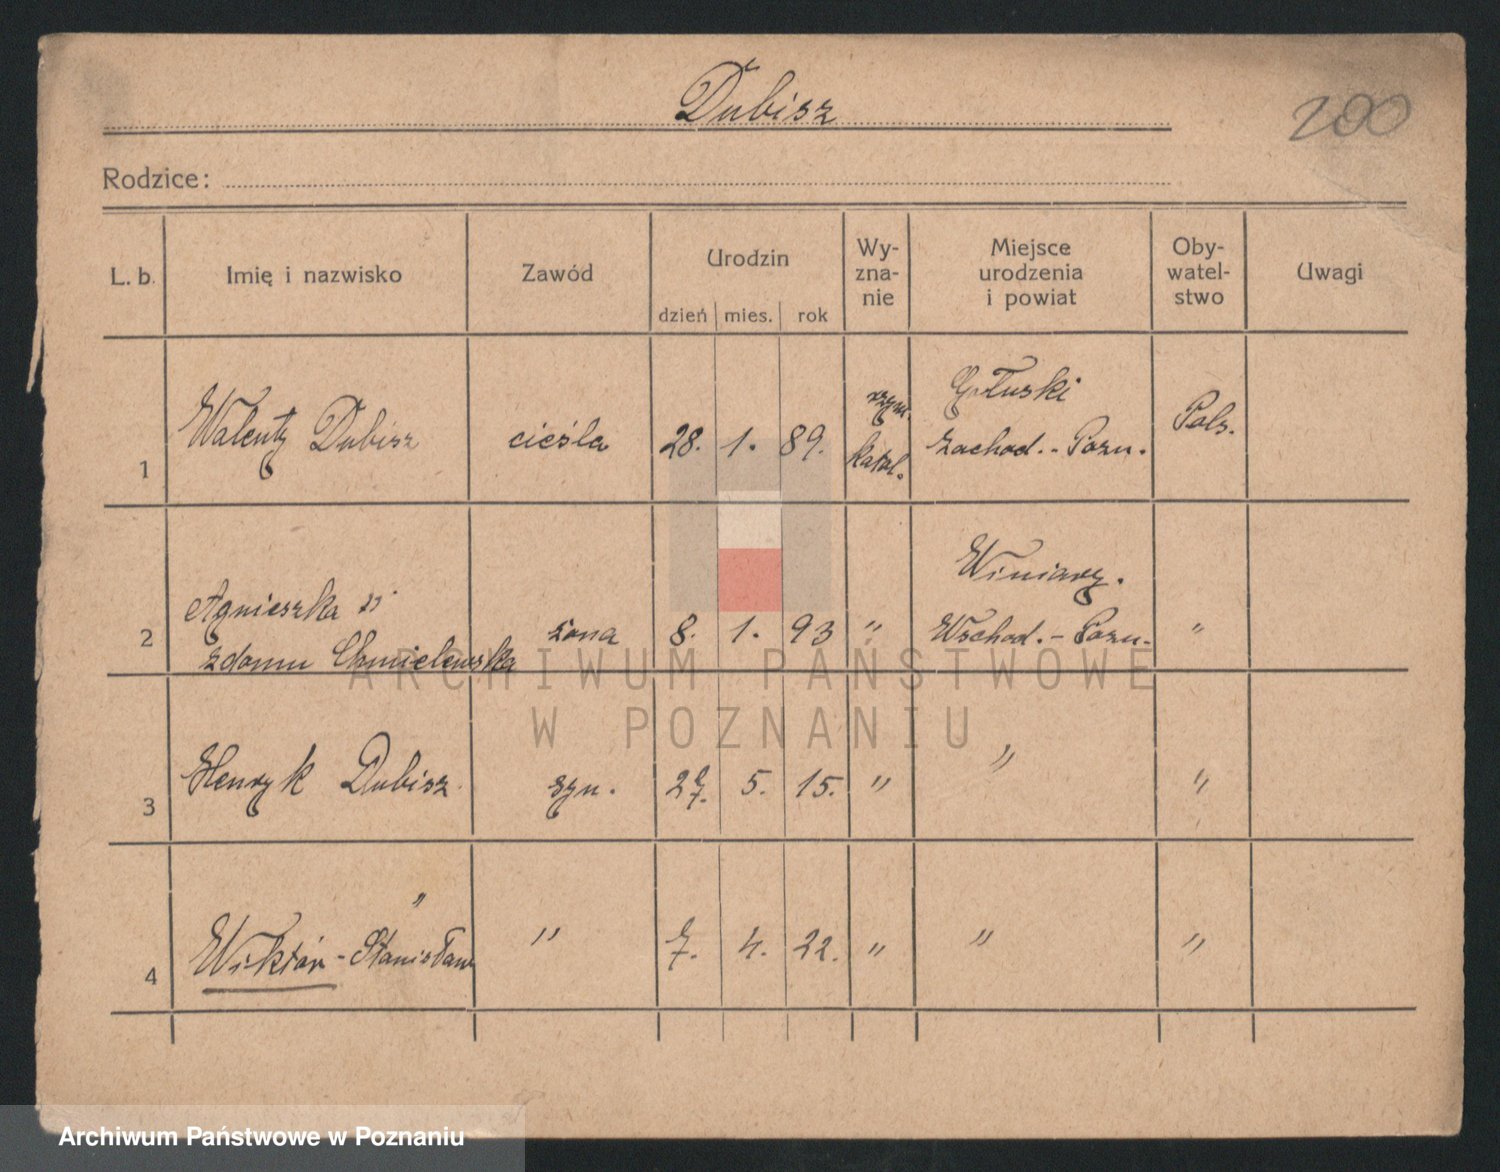 Dubisz
200
Rodzice:
L. b. Imię i nazwisko Zawód Urodzin dzień mies. rok Wy-zna-nie Miejsce urodzenia i powiat Oby-watel-stwo Uwagi
1 Walenty Dubisz cieśla 28. 1. 89. rzym. katol. zachod. - Pozn. Pols.
2 Agnieszka " żona 8. 1. 93 " Winiary. Wschod. - Pozn. "
z domu Chmielewska
3 Henryk Dubisz syn. 27. 5. 15. " " "
"
4 Wiktor - Stanisław " 7. 4. 22. " " "
ARCHIWUM PAŃSTWOWE
W POZNANIU
Archiwum Państwowe w Poznaniu